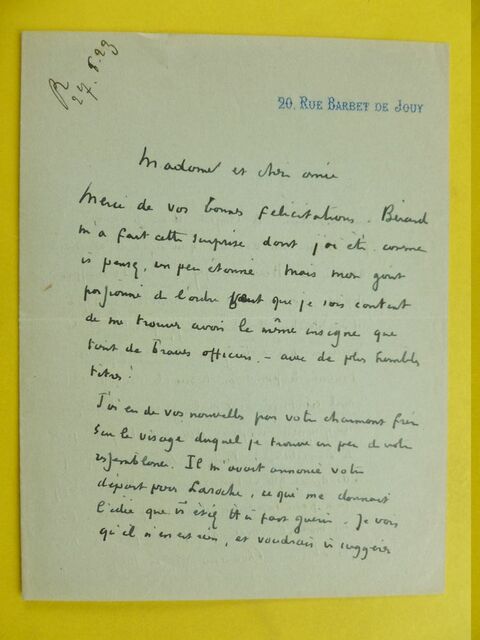 R
27.8.23
20, RUE BARBET DE JOUY
Madame et chère amie
Merci de vos bonnes félicitations. Bérard
m'a fait cette surprise dont j'ai été, comme
vs pensez, un peu étonné. Mais mon goût
passionné de l'ordre veut que je sois content
de me trouver avoir le même insigne que
tant de braves officiers, – avec de plus humbles
titres!
J'ai eu de vos nouvelles par votre charmant frère
sur le visage duquel je trouve un peu de votre
ressemblance. Il m'avait annoncé votre
départ pour Laroche, ce qui me donnait
l'idée que vs étiez tt à fait guérie. Je vois
qu'il n'en est rien, et voudrais vs suggérer